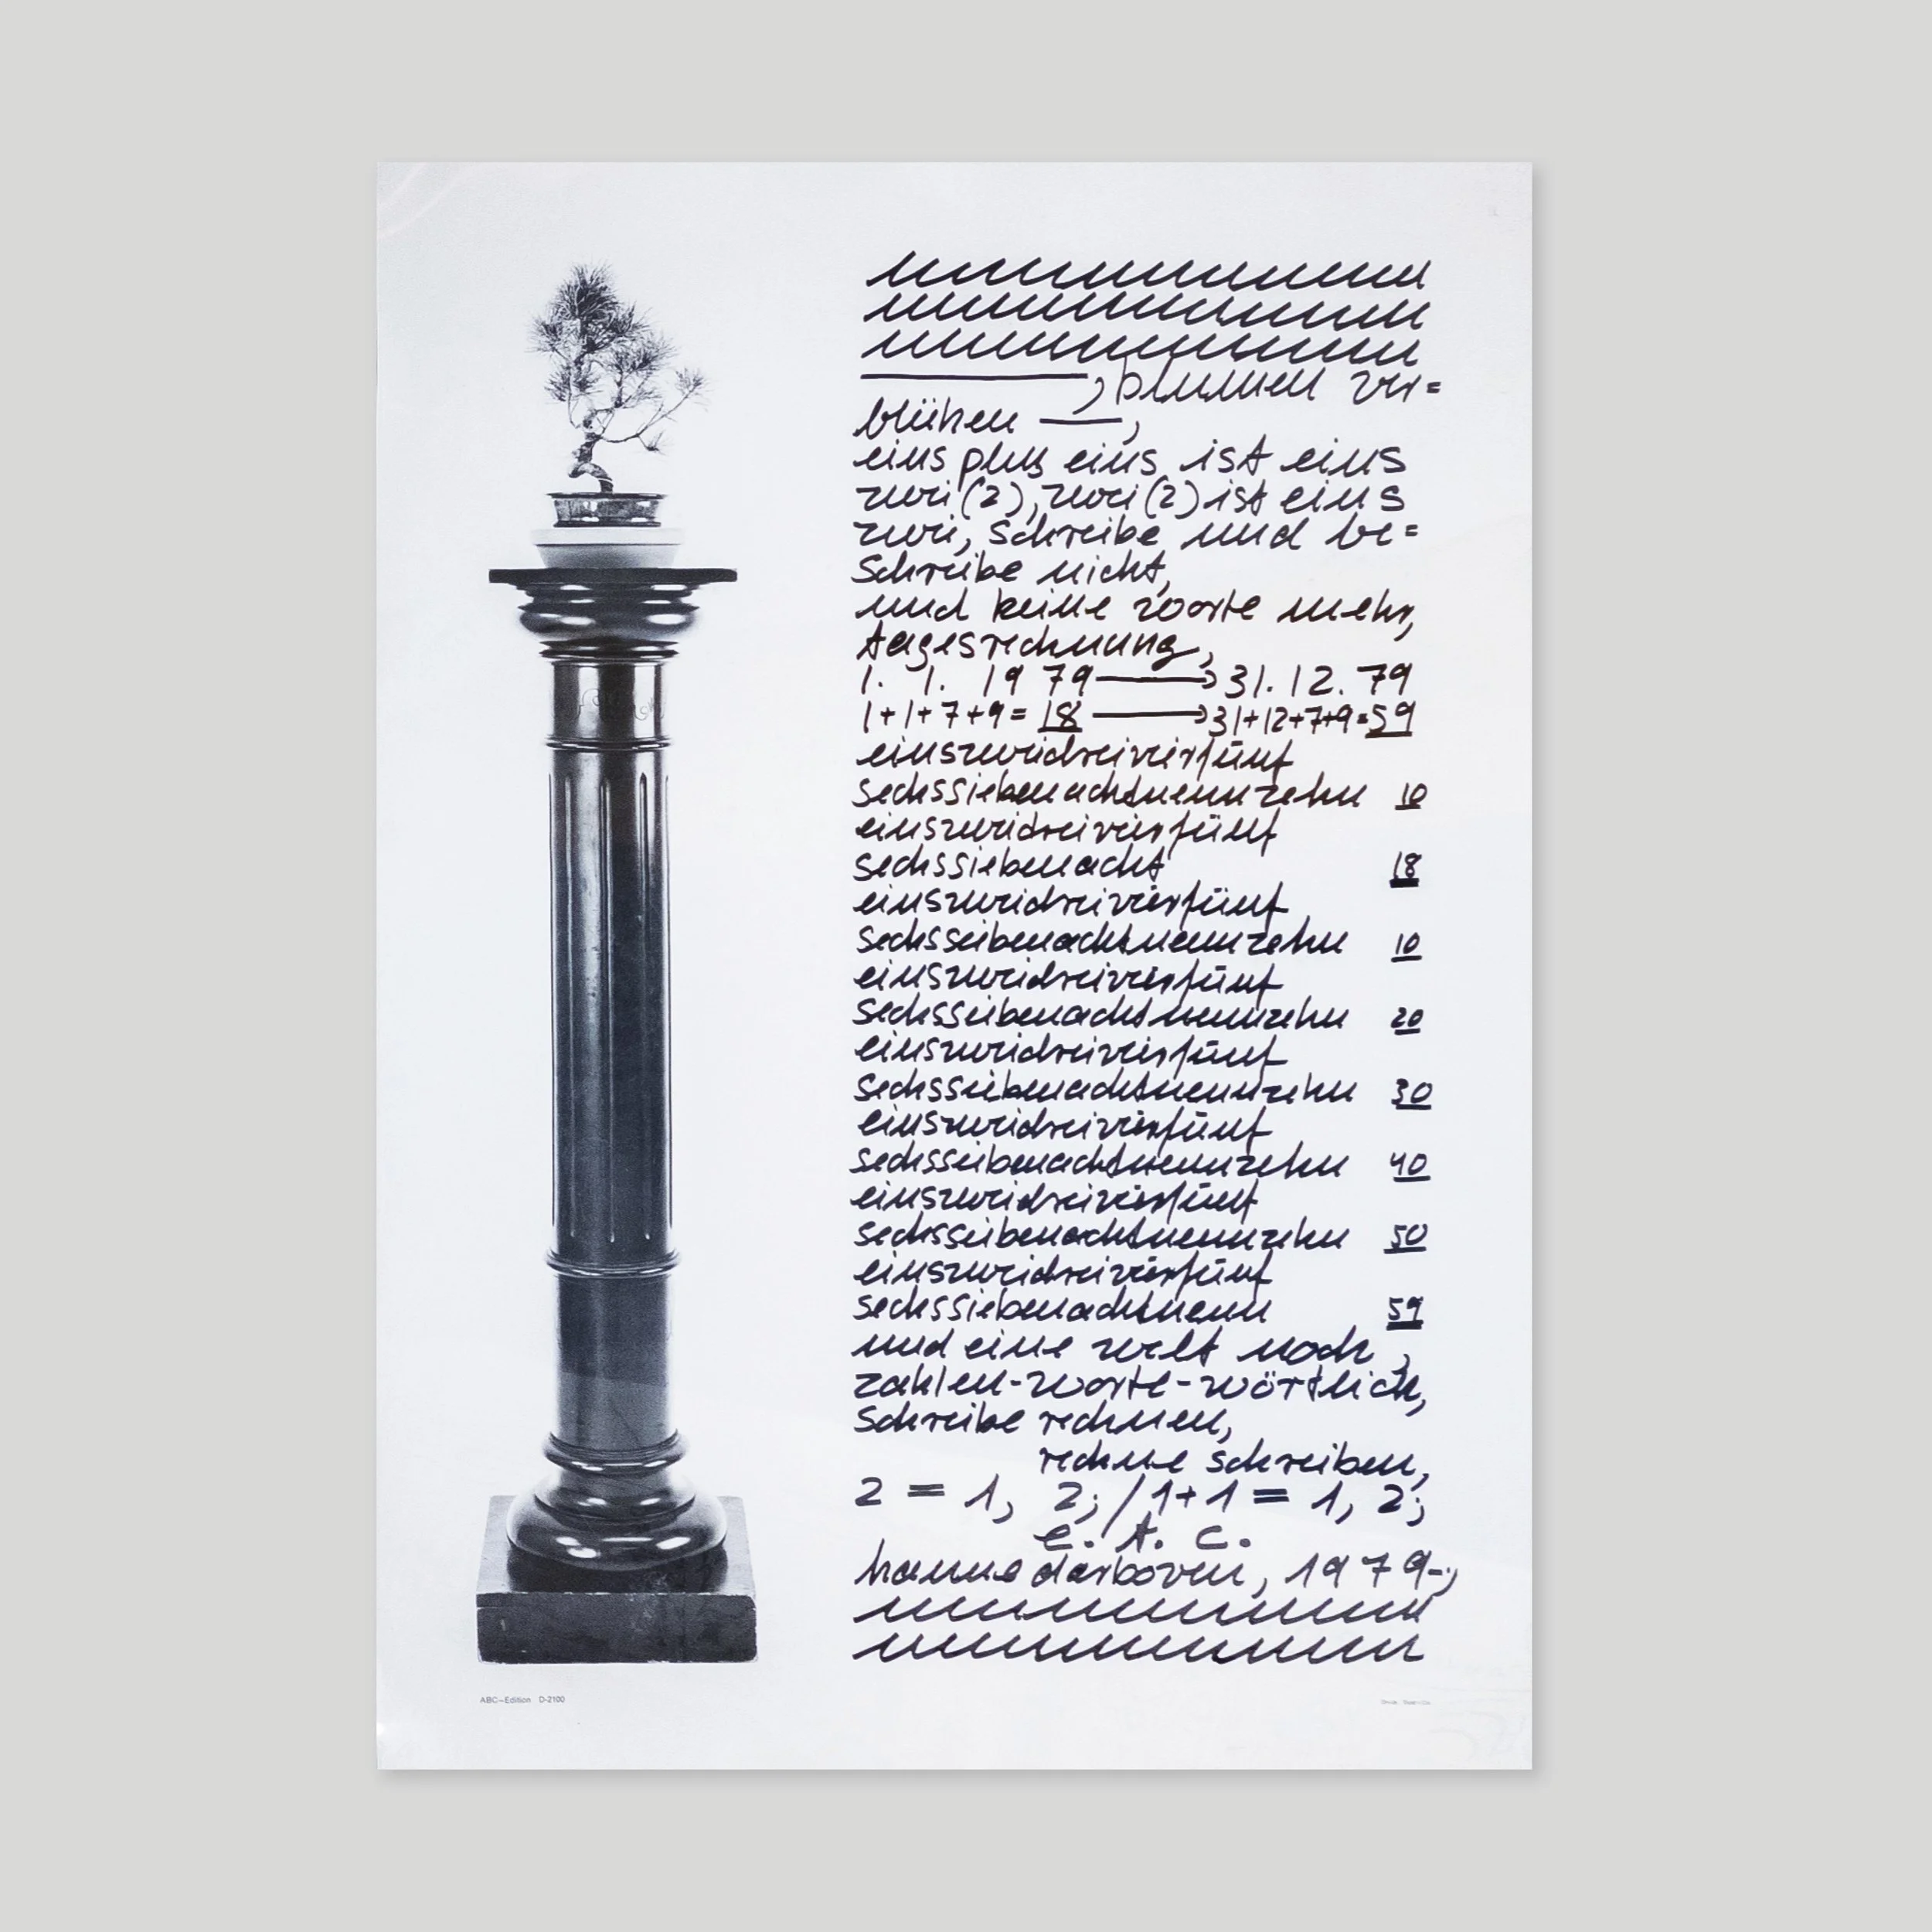 , blumen ver=
blühen —,
eins plus eins ist eins
zwei (2), zwei (2) ist eins
zwei, schreibe und be=
schreibe nicht,
und keine worte mehr,
tagesrechnung,
1. 1. 19 79 → 31. 12. 79
1+1+7+9=18 → 31+12+7+9=59
einszweidreivierfünf
sechssiebenachtneunzehn 10
einszweidreivierfünf
sechssiebenacht 18
einszweidreivierfünf
sechsseibenachtneunzehn 10
einszweidreivierfünf
sechsseibenachtneunzehn 20
einszweidreivierfünf
sechssiebenachtneunzehn 30
einszweidreivierfünf
sechsseibenachtneunzehn 40
einszweidreivierfünf
sechsseibenachtneunzehn 50
einszweidreivierfünf
sechssiebenachtneun 59
und eine welt noch,
zahlen-worte-wörtlich,
schreibe rechnen,
rechne schreiben,
2 = 1, 2; / 1+1 = 1, 2;
e. t. c.
hanne darboven, 1979-;
ABC–Edition D-2100